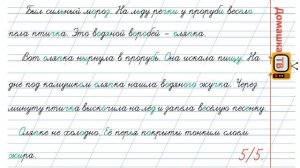 Был сильный мороз. На льду речки у проруби весело
пела птичка. Это водяной воробей - оляпка.
Вот оляпка нырнула в прорубь. Она искала пищу. На
дне под камушком оляпка нашла водяного жучка. Через
минуту птичка выскочила на лёд и запела весёлую песенку.
Оляпке не холодно. Её перья покрыты тонким слоем
жира.
5/5
Домашка
ТВ